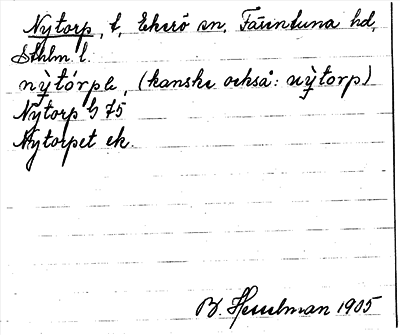 Nytorp, t, Ekerö sn, Färentuna hd,
Sthlm l.
nỳtórpe, (kanske också: nỳtorp)
Nytorp G 75
Nytorpet ek.
B. Hesselman 1905